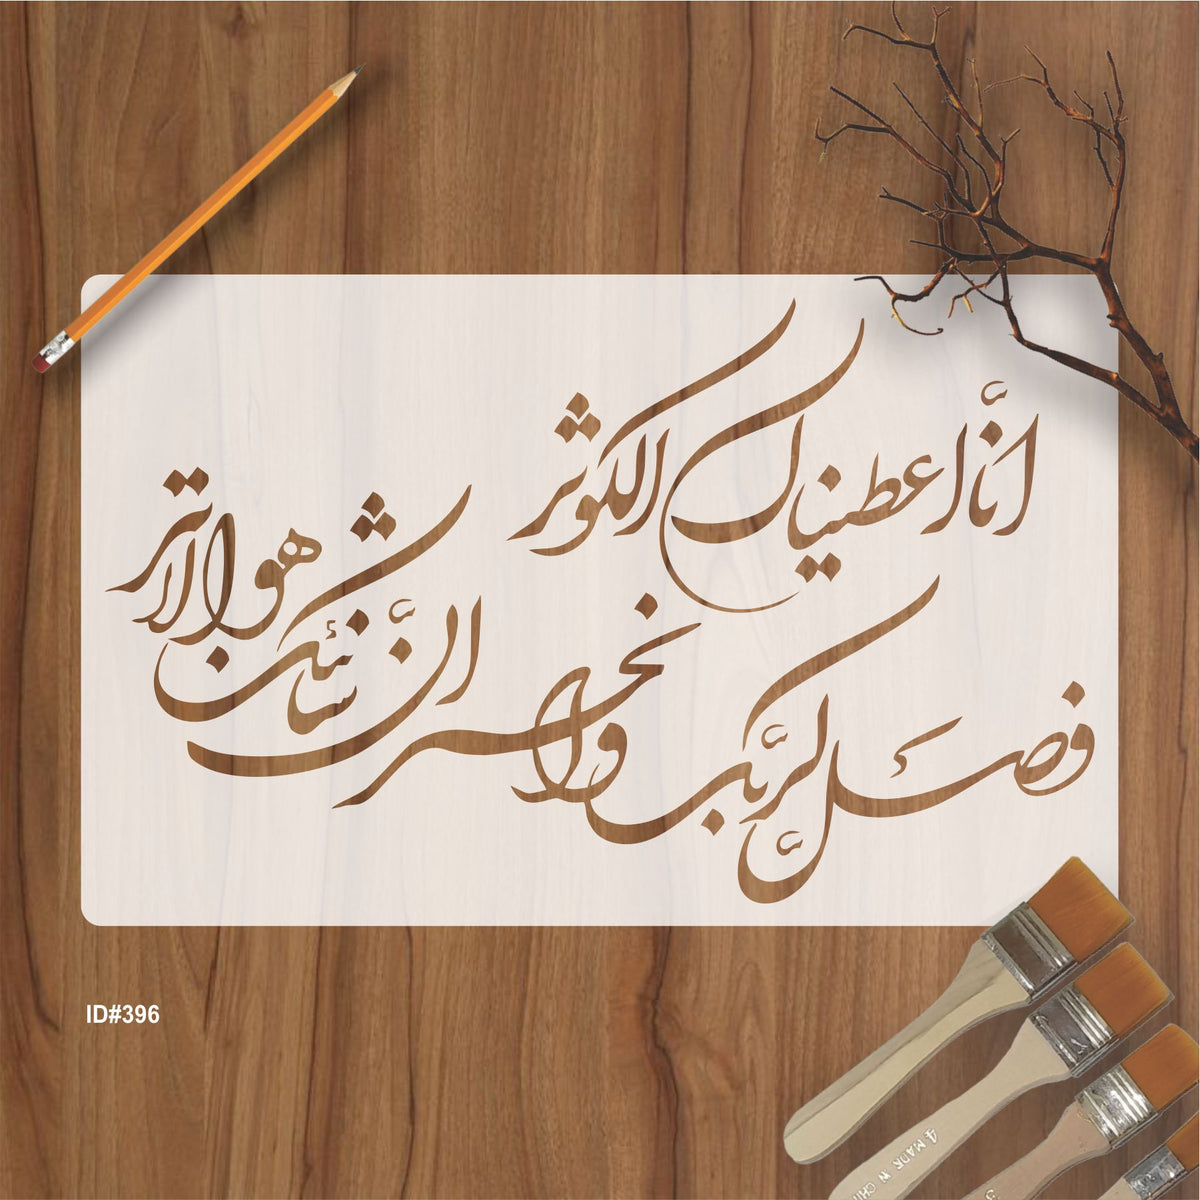 انّا اعطیناک الکوثر
فصلّ لربّک وانحر
انّ شانئک هو الابتر
ID#396
4 MADE IN CHI